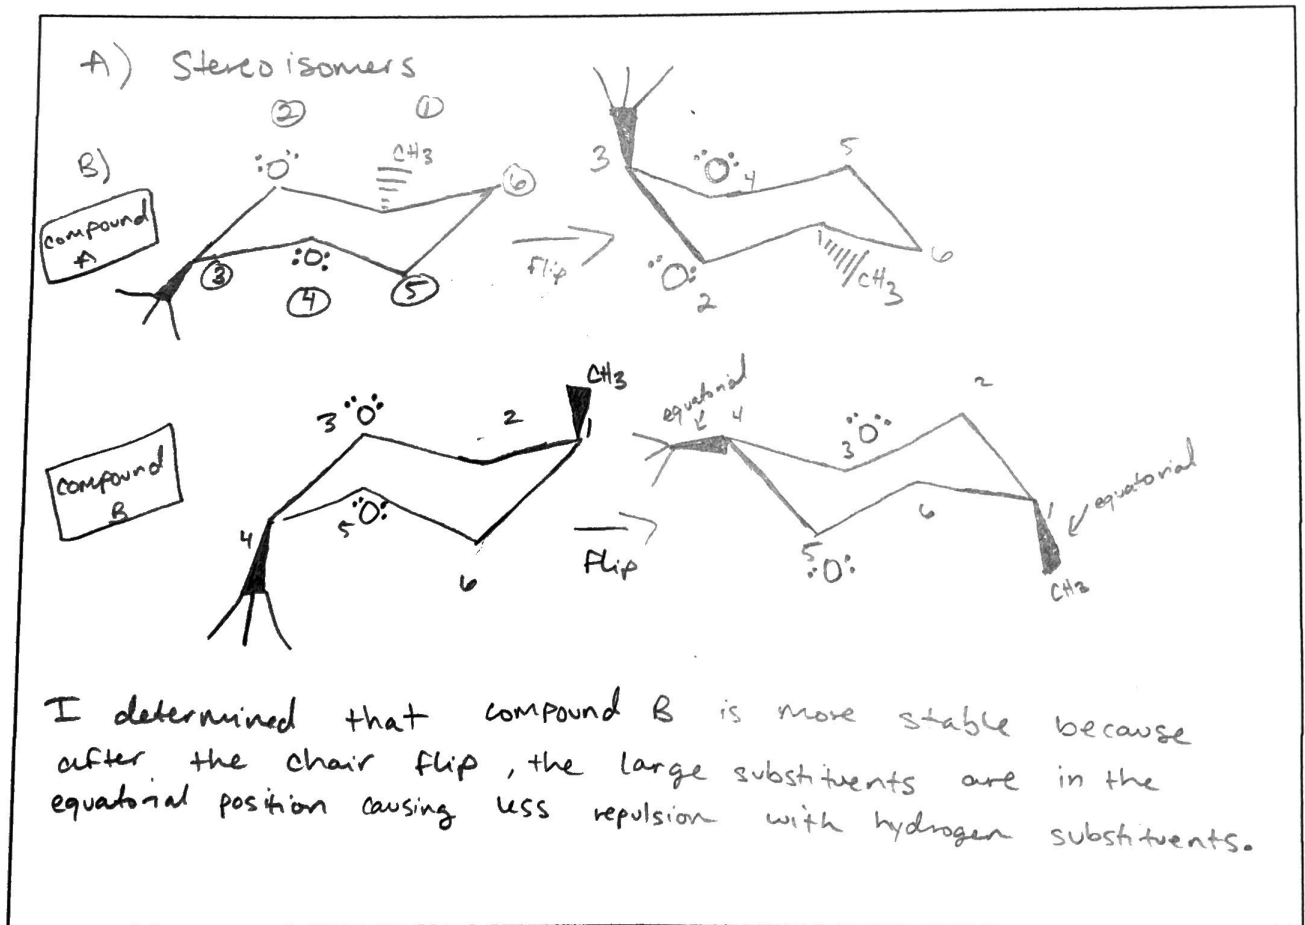 A) Stereoisomers
② ①
B)
:Ö CH3
⑥
compound
A
③
:O:
④
⑤
Flip
3
Ö:
4
5
6
1
CH3
:O:
2
CH3
3 Ö:
2
1
compound
B
4
5 O:
6
Flip
equatorial
4
3 O:
2
equatorial
6
1
5
:O:
CH3
I determined that compound B is more stable because
after the chair flip, the large substituents are in the
equatorial position causing less repulsion with hydrogen substituents.